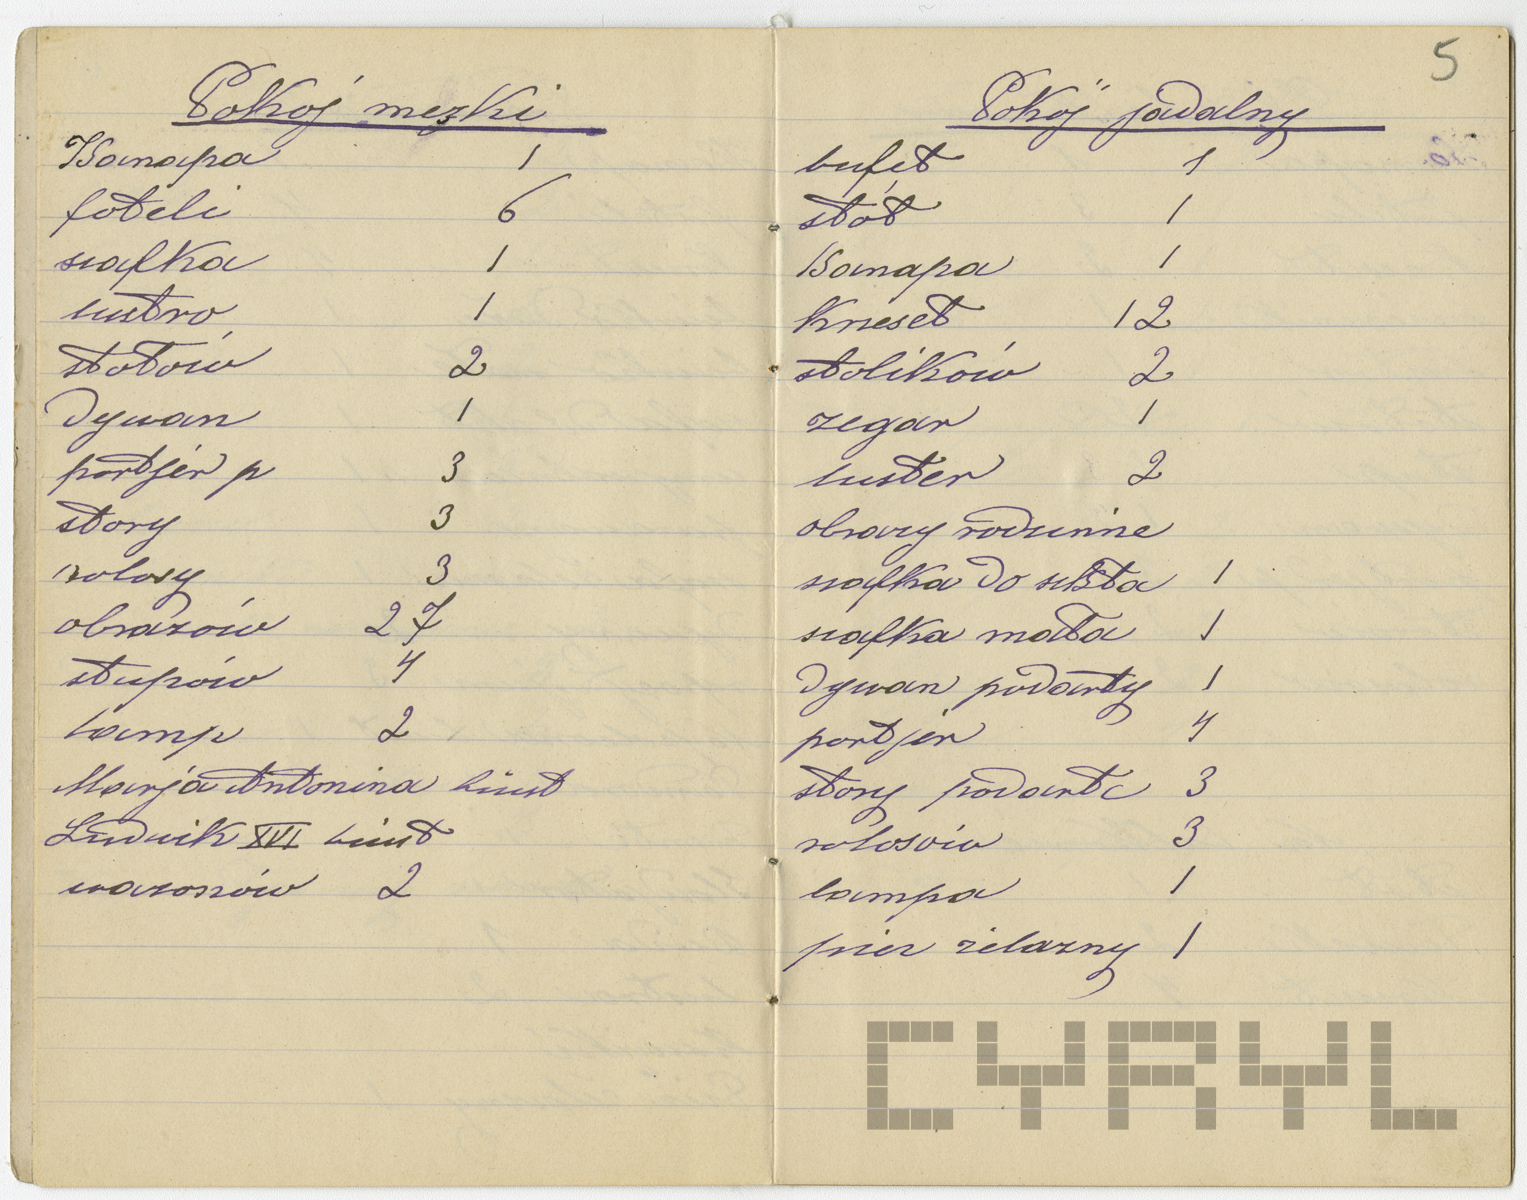 Pokój mezki
Kanapa 1
foteli 6
szafka 1
lustro 1
stołów 2
Dywan 1
portjer p 3
story 3
rolosy 3
obrazów 27
słupów 4
lamp 2
Marja Antonina biust
Ludwik XVI biust
wazonów 2
5
Pokój jadalny
bufet 1
stół 1
Kanapa 1
Krzeseł 12
stolików 2
zegar 1
luster 2
obrazy rodzinne
szafka do szkła 1
szafka mała 1
Dywan podarty 1
portjer 4
story podarte 3
rolosów 3
lampa 1
piec żelazny 1
CYRYL